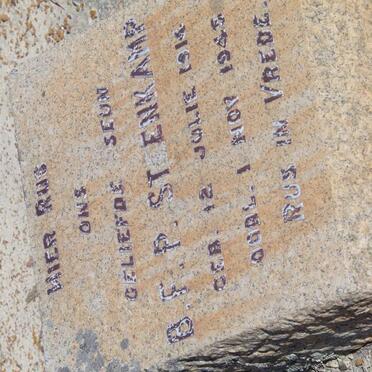 HIER RUS
ONS
GELIEFDE SEUN
B.F.P. STEENKAMP
GEB. 12 JULIE 191
OORL. 1 NOV 1945
RUS IN VREDE.